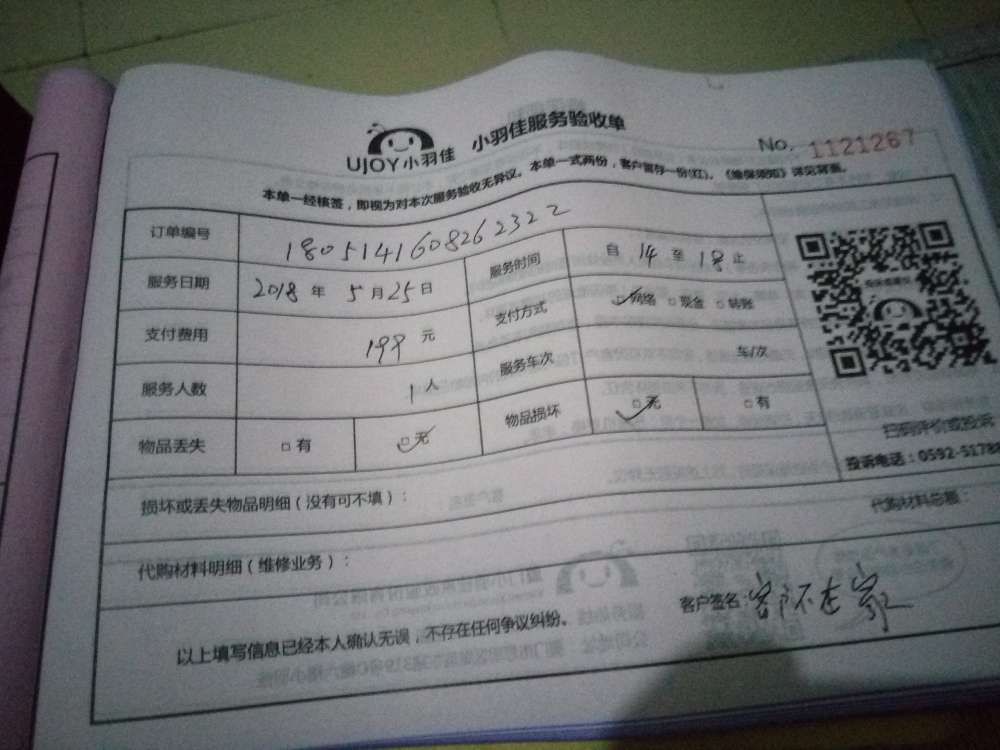 UJOY小羽佳 小羽佳服务验收单 No. 1121267
本单一经核签，即视为对本次服务验收无异议。本单一式两份，客户留存一份(红)。《维保须知》详见背面。
订单编号 180514160826 2322
服务日期 2018 年 5 月 25 日 服务时间 自 14 至 18 止
支付费用 199 元 支付方式 网络 □ 现金 □ 转账
服务人数 1 人 服务车次 车/次
物品丢失 □ 有 □ 无 物品损坏 □ 无 □ 有
扫码评价或投诉
投诉电话：0592-5178
损坏或丢失物品明细（没有可不填）：
代购材料明细（维修业务）： 代购材料总额：
以上填写信息已经本人确认无误，不存在任何争议纠纷。 客户签名: 客户不在家